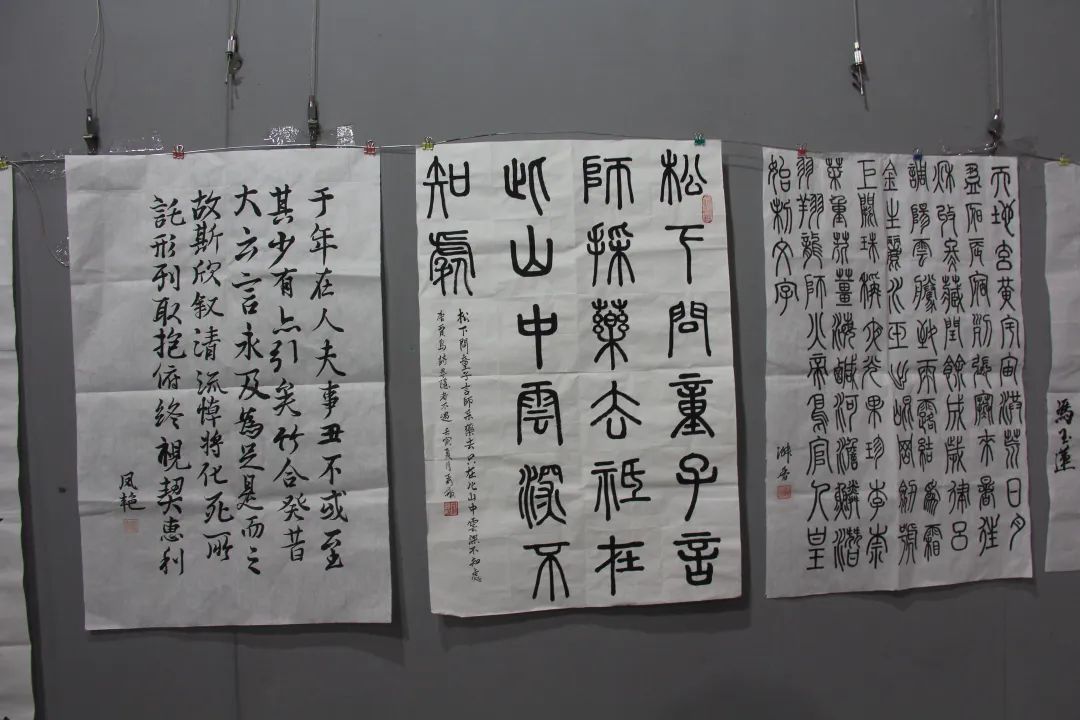 于年在人夫事丑不或至
其少有亦引矣竹合癸昔
大六言永及為足是而之
故斯欣叙清流悼將化死所
託形列取抱俯終視契惠利
凤艳
松下問童子言
師採藥去祗在
此山中雲深不
知處
松下問童子言師采藥去只在此山中雲深不知處
唐賈島詩尋隱者不遇 壬寅夏月
天地玄黃宇宙洪荒日月
盈昃辰宿列張寒來暑往
秋收冬藏閏餘成歲律呂
調陽雲騰致雨露結為霜
金生麗水玉出崑岡劍號
巨闕珠稱夜光果珍李柰
菜重芥薑海鹹河淡鱗潛
羽翔龍師火帝鳥官人皇
始制文字
馮玉蓮